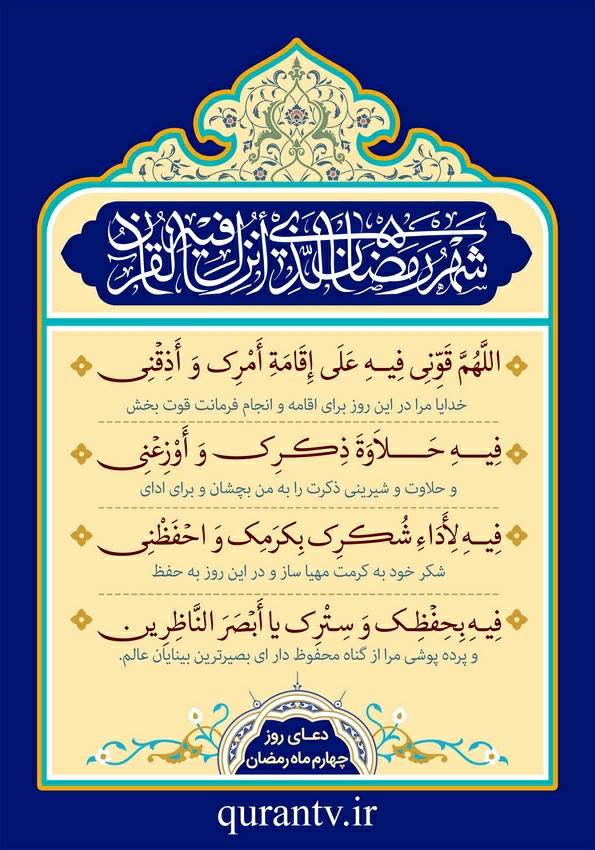 شهر رمضان الذی أنزل فیه القرآن
اللَّهُمَّ قَوِّنِی فِیهِ عَلَی إِقَامَةِ أَمْرِک وَ أَذِقْنِی
خدایا مرا در این روز برای اقامه و انجام فرمانت قوت بخش
فِیهِ حَلاَوَةَ ذِکرِک وَ أَوْزِعْنِی
و حلاوت و شیرینی ذکرت را به من بچشان و برای ادای
فِیهِ لِأَدَاءِ شُکرِک بِکرَمِک وَ احْفَظْنِی
شکر خود به کرمت مهیا ساز و در این روز به حفظ
فِیهِ بِحِفْظِک وَ سِتْرِک یا أَبْصَرَ النَّاظِرِین
و پرده پوشی مرا از گناه محفوظ دار ای بصیرترین بینایان عالم.
دعای روز
چهارم ماه رمضان
qurantv.ir